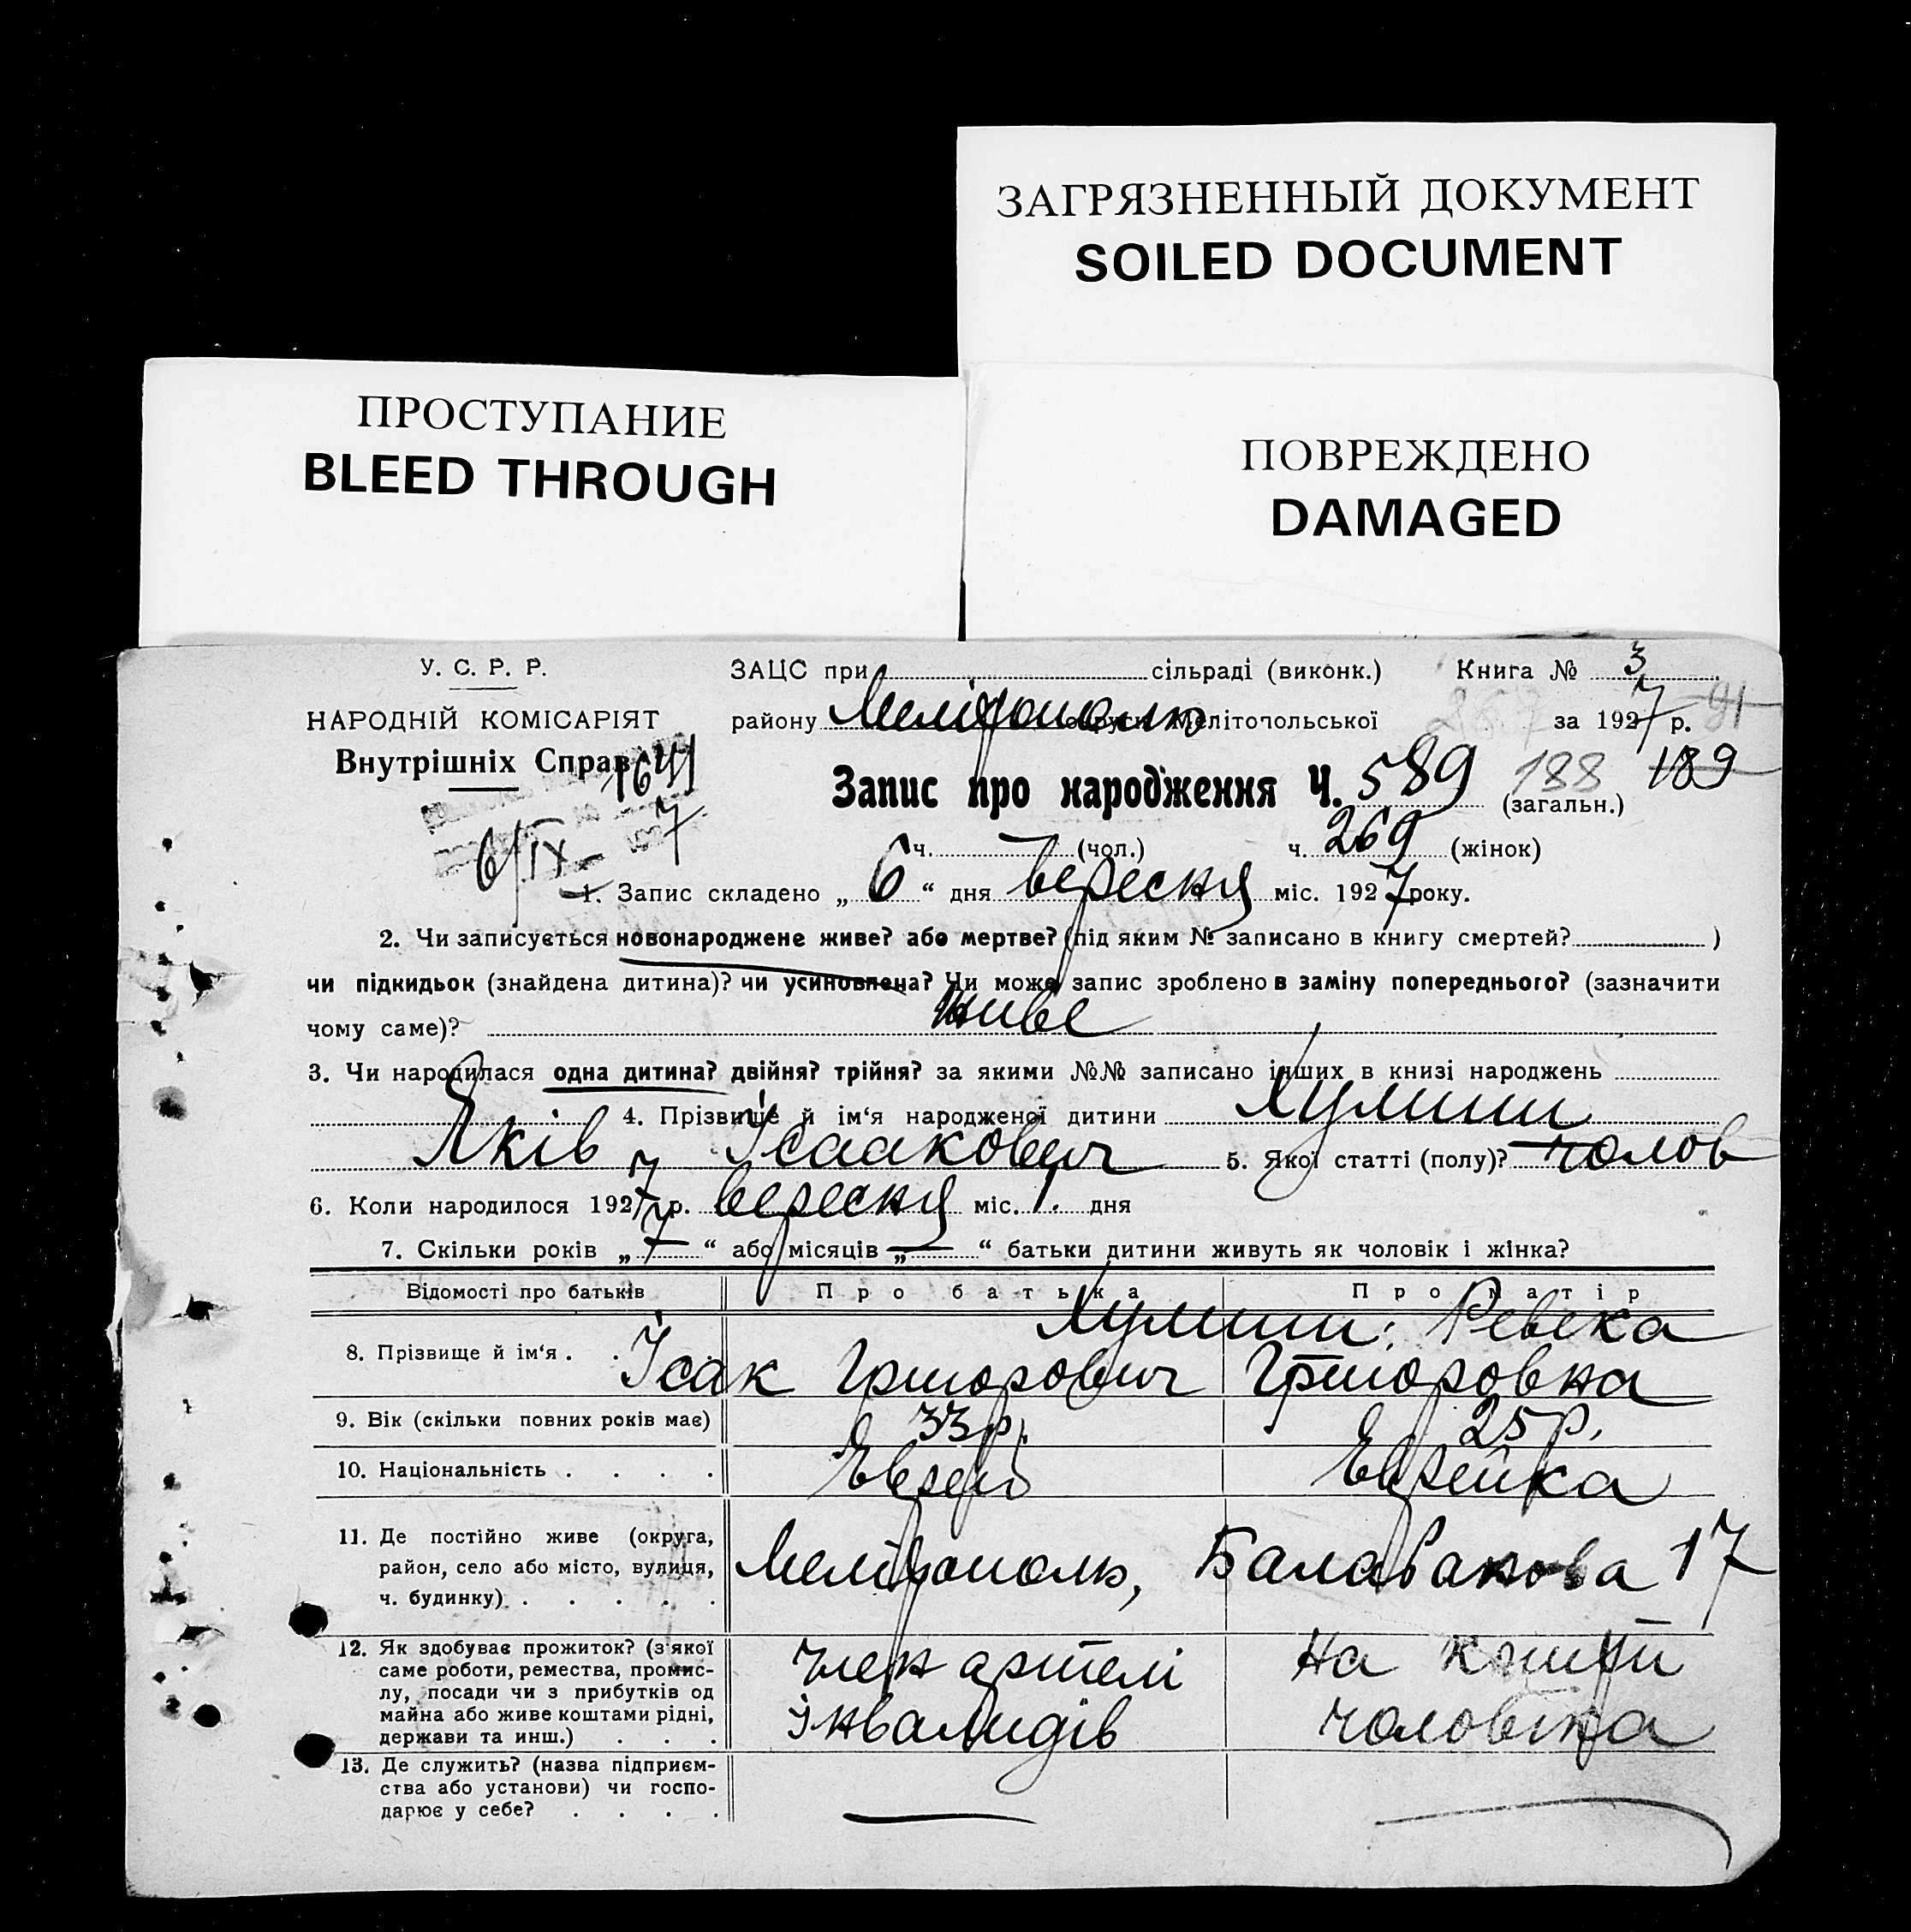 ЗАГРЯЗНЕННЫЙ ДОКУМЕНТ
SOILED DOCUMENT
ПРОСТУПАНИЕ
BLEED THROUGH
ПОВРЕЖДЕНО
DAMAGED
У. С. Р. Р.
НАРОДНІЙ КОМІСАРІЯТ
Внутрішніх Справ
1641
6/IX- 7
ЗАЦС при сільраді (виконк.) Книга № 3
району Мелітополь округи Мелітопольської 267 за 1927 р. 91
Запис про народження Ч. 589 (загальн.) 188 189
ч. — (чол.) ч. 269 (жінок)
1. Запис складено „ 6 “ дня вересня міс. 1927 року.
2. Чи записується новонароджене живе? або мертве? (під яким № записано в книгу смертей? )
чи підкидьок (знайдена дитина)? чи усиновлена? Чи може запис зроблено в заміну попереднього? (зазначити
чому саме)? живе
3. Чи народилася одна дитина? двійня? трійня? за якими №№ записано інших в книзі народжень
4. Прізвище й ім‘я народженої дитини
Яків Ісаакович 5. Якої статті (полу)? чолов
6. Коли народилося 1927 р. вересня міс. 1. дня
7. Скільки років „ 7 “ або місяців „ — “ батьки дитини живуть як чоловік і жінка?
Відомості про батьків Про батька Про матір
8. Прізвище й ім‘я . Ісак Григорович Ревека Григоровна
9. Вік (скільки повних років має) 33 р. 25 р.
10. Національність . . . . Еврей Еврейка
11. Де постійно живе (округа,
район, село або місто, вулиця,
ч. будинку) . . . . .
Мелітополь, 17
12. Як здобуває прожиток? (з якої
саме роботи, ремества, промис-
лу, посади чи з прибутків од
майна або живе коштами рідні,
держави та инш.) . . .
член артелі
Інвалидів
на кошти
чоловіка
13. Де служить? (назва підприєм-
ства або установи) чи госпо-
дарює у себе? . . . .